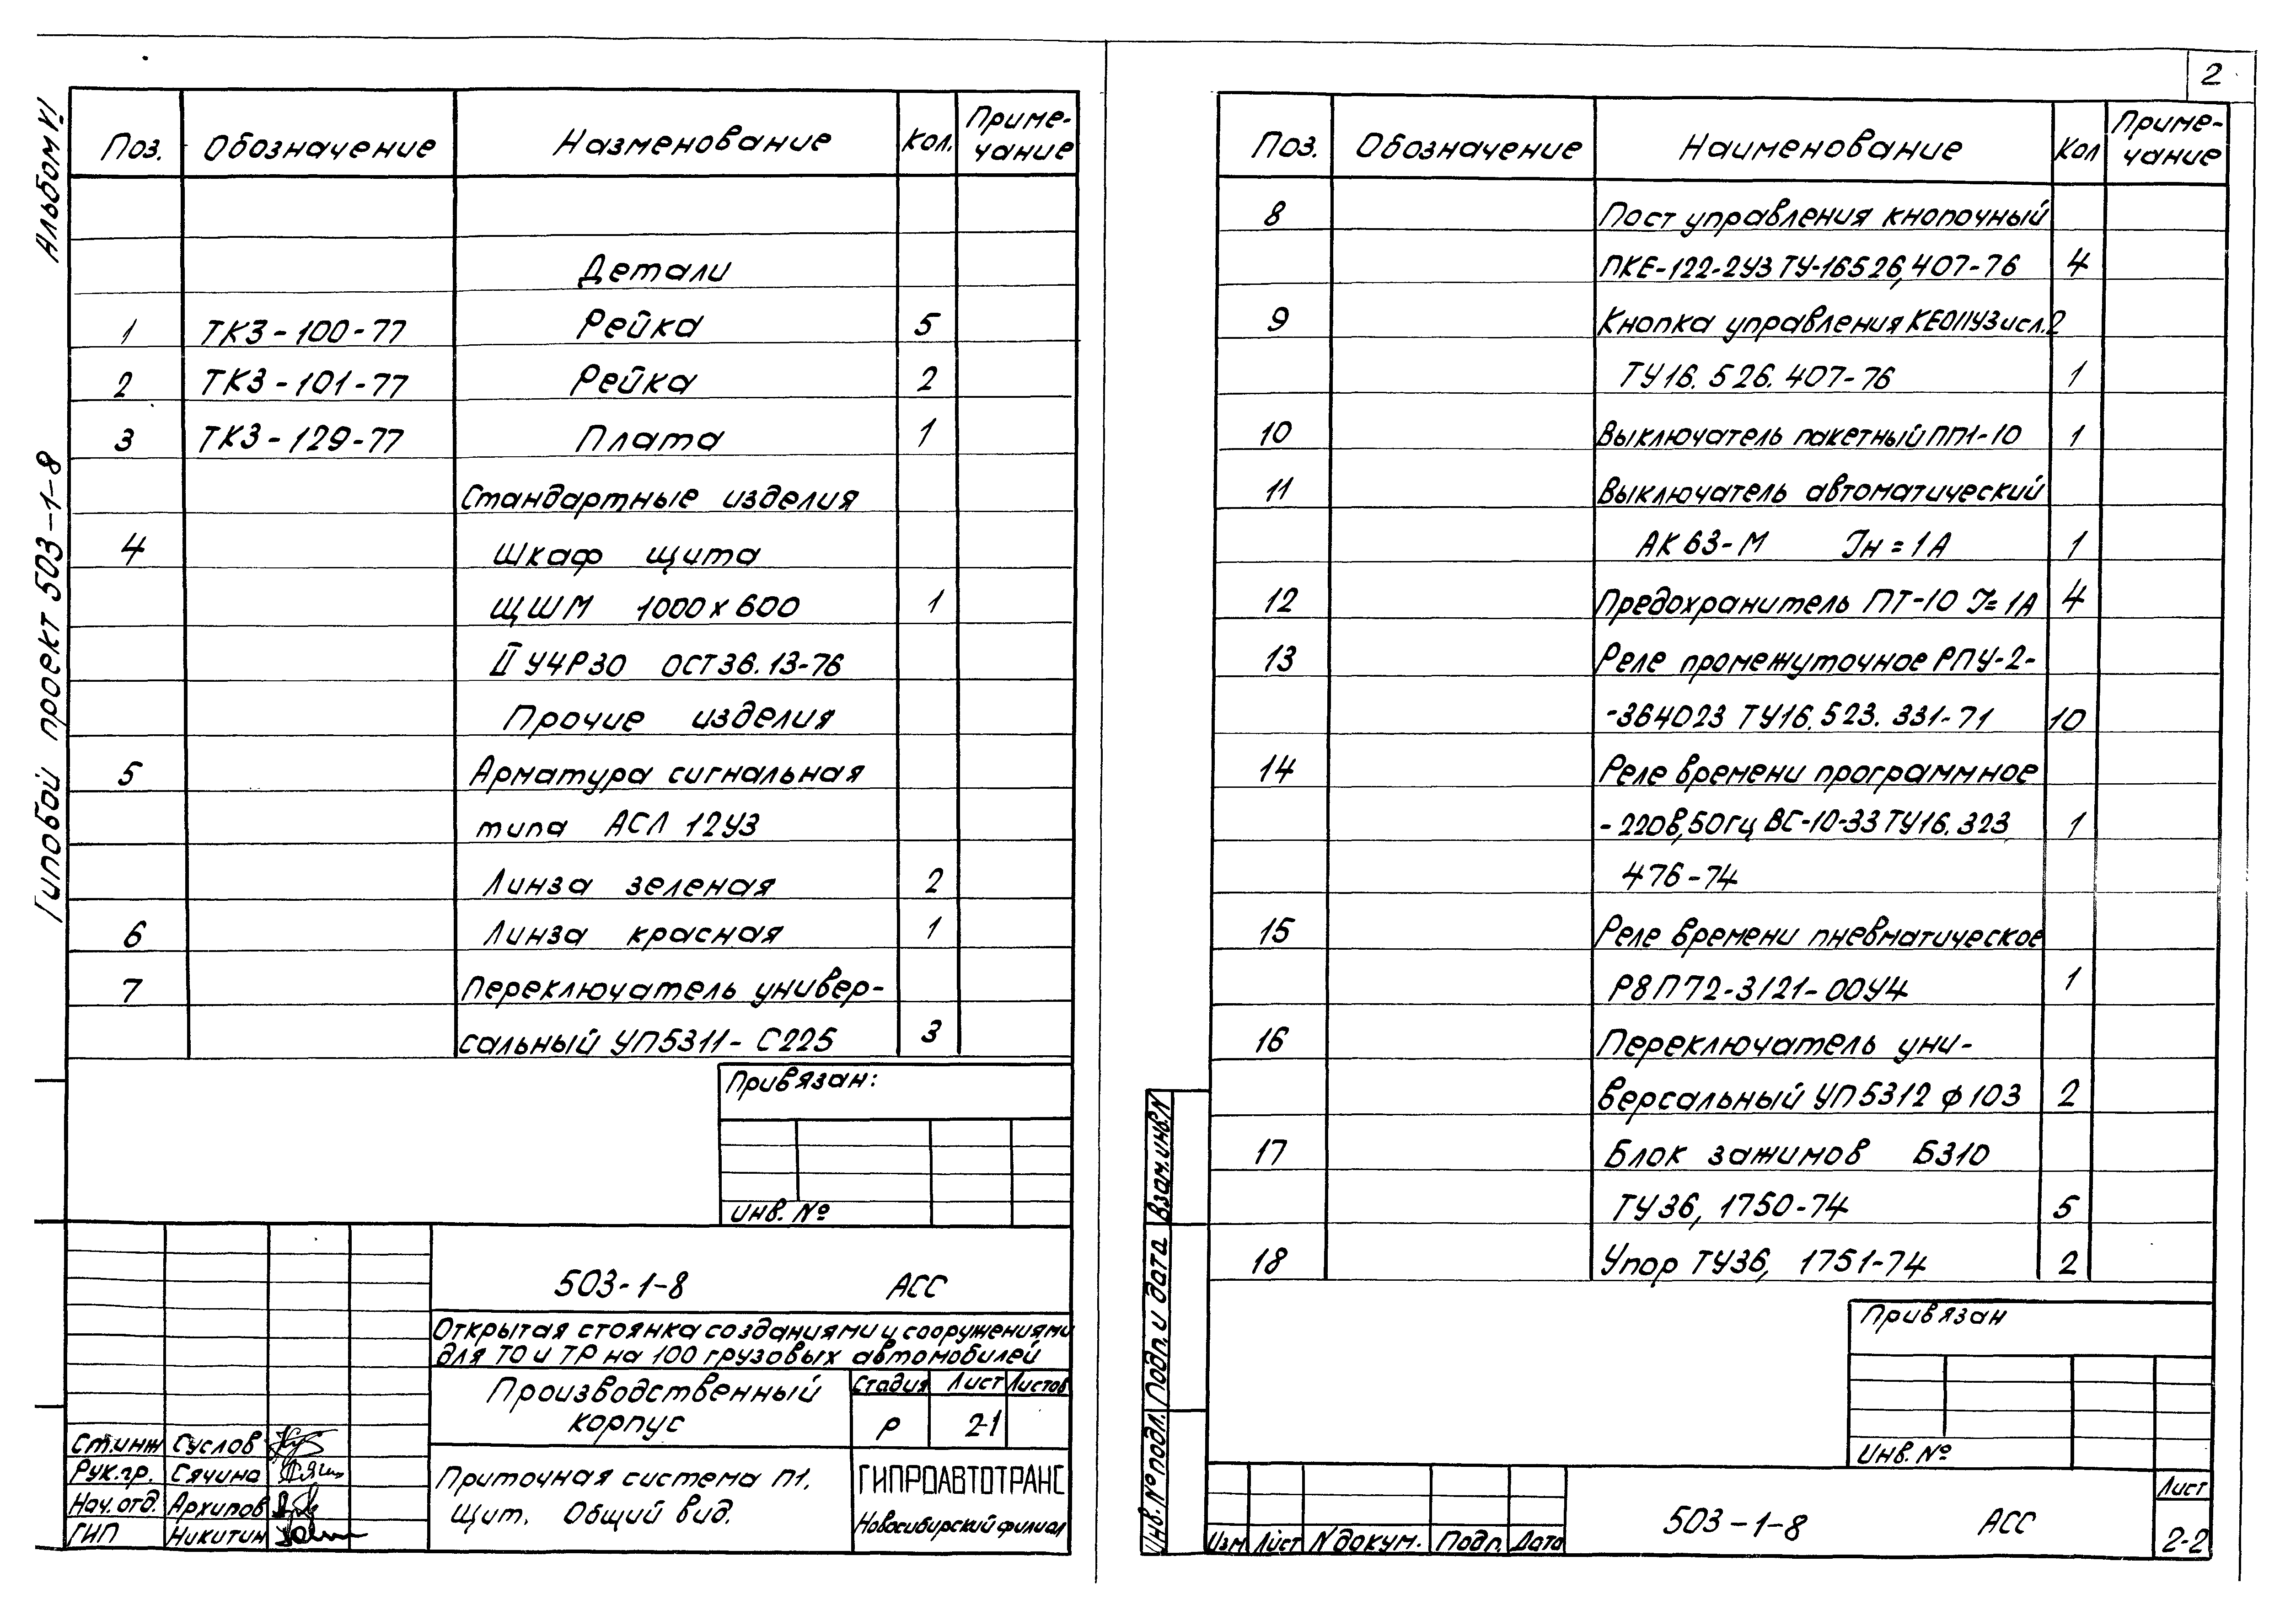 2
Альбом VI
Типовой проект 503-1-8
Поз. Обозначение Назменование Кол. Приме-
чание
Детали
1 ТКЗ-100-77 Рейка 5
2 ТКЗ-101-77 Рейка 2
3 ТКЗ-129-77 Плата 1
Стандартные изделия
4 Шкаф щита
ЩШМ 1000х600 1
II У4Р30 ОСТ36.13-76
Прочие изделия
5 Арматура сигнальная
типа АСЛ 12У3
Линза зеленая 2
6 Линза красная 1
7 Переключатель универ-
сальный УП5311-С225 3
Привязан:
Инв. №
503-1-8 АСС
Открытая стоянка созданиями и сооружениями
для ТО и ТР на 100 грузовых автомобилей
Производственный
корпус
Стадия Лист Листов
Р 2-1
Ст.инж Суслов
Рук.гр. Сячина
Нач.отд. Архипов
ГИП Никитин
Приточная система П1.
Щит. Общий вид.
ГИПРОАВТОТРАНС
Новосибирский филиал
Поз. Обозначение Наименование Кол Приме-
чание
8 Пост управления кнопочный
ПКЕ-122-2У3 ТУ-16526,407-76 4
9 Кнопка управления КЕ011У3 исп.2
ТУ16.526.407-76 1
10 Выключатель пакетный ПП1-10 1
11 Выключатель автоматический
АК63-М Iн=1А 1
12 Предохранитель ПТ-10 I=1А 4
13 Реле промежуточное РПУ-2-
-364023 ТУ16.523.331-71 10
14 Реле времени программное
-220в,50гц ВС-10-33 ТУ16.323 1
476-74
15 Реле времени пневматическое
Р8П72-3121-00У4 1
16 Переключатель уни-
версальный УП5312 ф103 2
17 Блок зажимов Б310
ТУ36, 1750-74 5
18 Упор ТУ36, 1751-74 2
Привязан
Инв. №
Взам.инв.N
Подп. и дата
Инв. № подл.
Изм Лист N докум. Подп. Дата
503-1-8 АСС
Лист
2-2